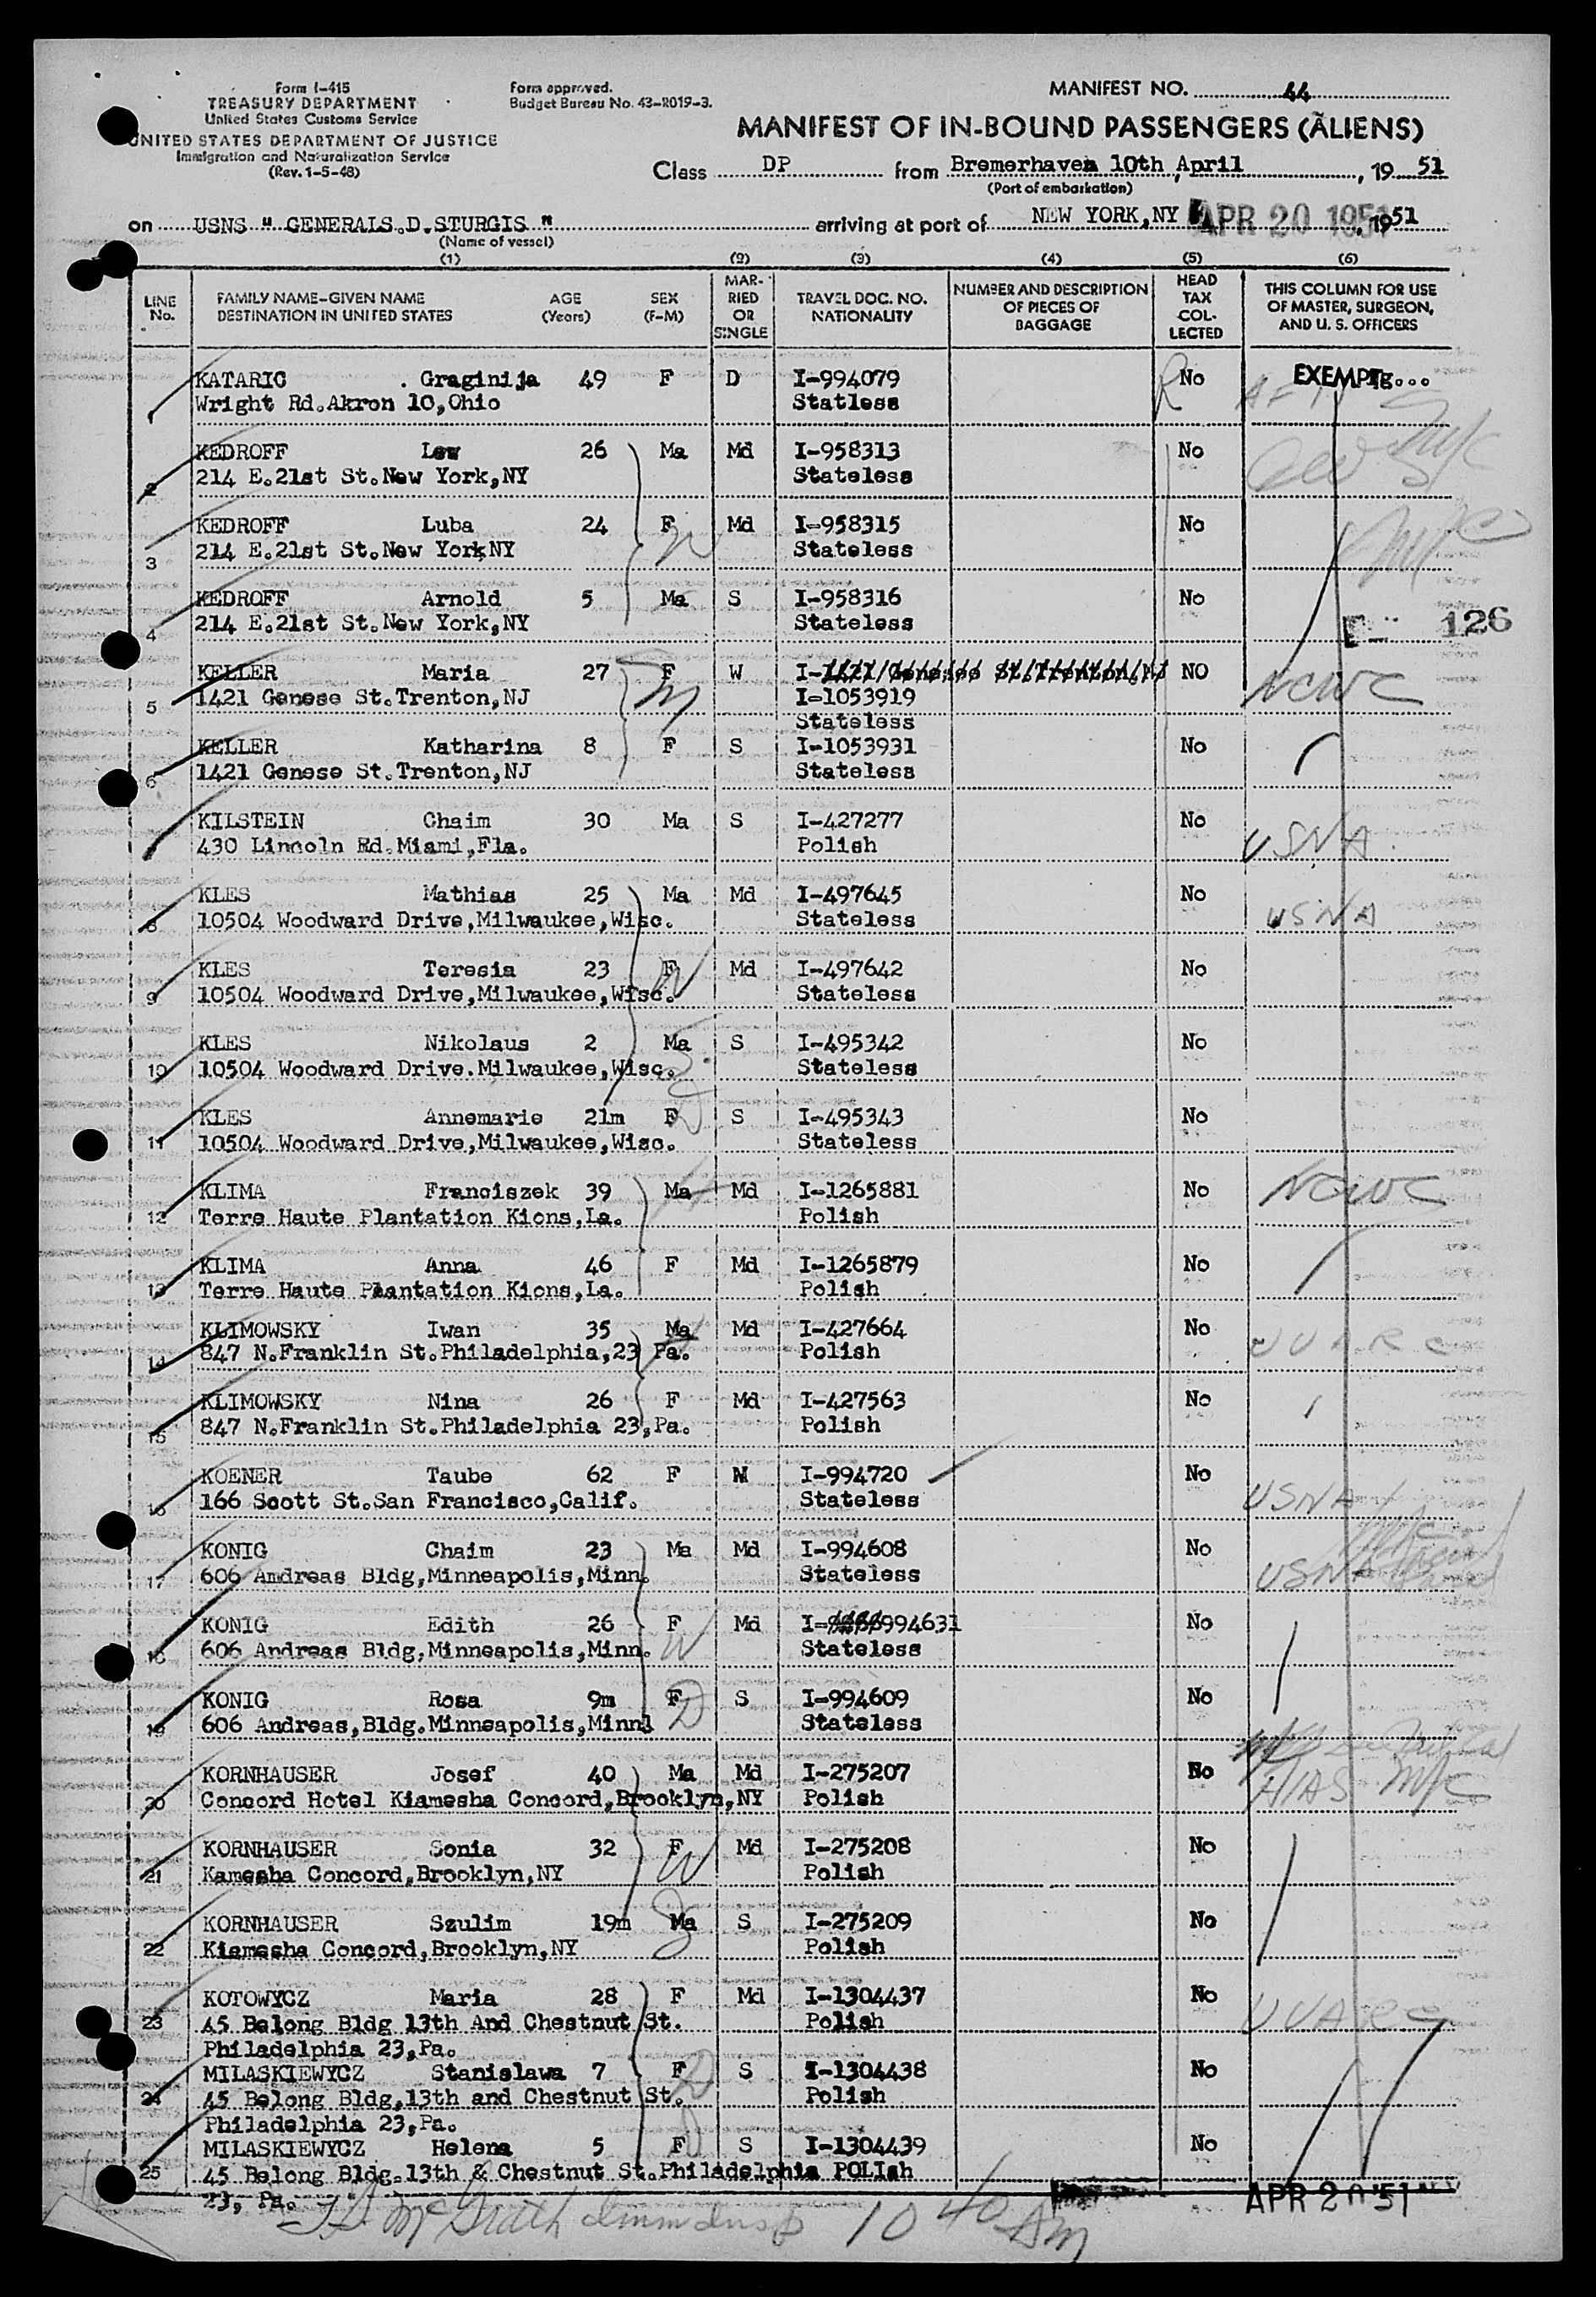 Form I-415
TREASURY DEPARTMENT
United States Customs Service
UNITED STATES DEPARTMENT OF JUSTICE
Immigration and Naturalization Service
(Rev. 1-5-48)
Form approved.
Budget Bureau No. 43-R019-3.
MANIFEST NO. 44
MANIFEST OF IN-BOUND PASSENGERS (ALIENS)
Class DP from Bremerhaven 10th, April, 19 51
(Port of embarkation)
on USNS " GENERALS.D.STURGIS " arriving at port of NEW YORK,NY APR 20 1951, 1951
(Name of vessel)
(1) (2) (3) (4) (5) (6)
LINE No. FAMILY NAME-GIVEN NAME DESTINATION IN UNITED STATES AGE (Years) SEX (F-M) MARRIED OR SINGLE TRAVEL DOC. NO. NATIONALITY NUMBER AND DESCRIPTION OF PIECES OF BAGGAGE HEAD TAX COLLECTED THIS COLUMN FOR USE OF MASTER, SURGEON, AND U. S. OFFICERS
KATARIC . Graginija 49 F D I-994079 R No EXEMPTg...
1 Wright Rd.Akron 10,Ohio Statless
KEDROFF Lew 26 Ma Md I-958313 No
2 214 E.21st St.New York,NY Stateless
KEDROFF Luba 24 F Md I-958315 No
3 214 E.21st St.New York,NY W Stateless
KEDROFF Arnold 5 Ma S I-958316 No
4 214 E.21st St.New York,NY Stateless 126
KELLER Maria 27 F W I- NO NCWC
5 1421 Genese St.Trenton,NJ M I-1053919
Stateless
KELLER Katharina 8 F S I-1053931 No
6 1421 Genese St.Trenton,NJ Stateless
KILSTEIN Chaim 30 Ma S I-427277 No USNA
430 Lincoln Rd.Miami,Fla. Polish
KLES Mathias 25 Ma Md I-497645 No USNA
8 10504 Woodward Drive,Milwaukee,Wisc. Stateless
KLES Teresia 23 F W Md I-497642 No
9 10504 Woodward Drive,Milwaukee,Wisc. Stateless
KLES Nikolaus 2 Ma S I-495342 No
10 10504 Woodward Drive.Milwaukee,Wisc. Stateless
KLES Annemarie 21m F D S I-495343 No
11 10504 Woodward Drive,Milwaukee,Wisc. Stateless
KLIMA Franciszek 39 Ma Md I-1265881 No NCWC
12 Terre Haute Plantation Kions,La. Polish
KLIMA Anna 46 F Md I-1265879 No
13 Terre Haute Plantation Kions,La. Polish
KLIMOWSKY Iwan 35 Ma Md I-427664 No UUARC
14 847 N.Franklin St.Philadelphia,23 Pa. Polish
KLIMOWSKY Nina 26 F Md I-427563 No
15 847 N.Franklin St.Philadelphia 23,Pa. Polish
KOENER Taube 62 F I-994720 No USNA
16 166 Scott St.San Francisco,Calif. Stateless
KONIG Chaim 23 Ma Md I-994608 No USNA
17 606 Andreas Bldg,Minneapolis,Minn. Stateless
KONIG Edith 26 F W Md I-994631 No
18 606 Andreas Bldg,Minneapolis,Minn. Stateless
KONIG Rosa 9m F D S I-994609 No
19 606 Andreas,Bldg.Minneapolis,Minn Stateless
KORNHAUSER Josef 40 Ma Md I-275207 No HIAS
20 Concord Hotel Kiamesha Concord,Brooklyn,NY Polish
KORNHAUSER Sonia 32 F W Md I-275208 No
21 Kamesha Concord,Brooklyn,NY Polish
KORNHAUSER Szulim 19m Ma S S I-275209 No
22 Kiamesha Concord,Brooklyn,NY Polish
KOTOWYCZ Maria 28 F Md I-1304437 No UUARC
23 45 Belong Bldg 13th And Chestnut St. Polish
Philadelphia 23,Pa.
MILASKIEWYCZ Stanislawa 7 F D S I-1304438 No
24 45 Belong Bldg,13th and Chestnut St. Polish
Philadelphia 23,Pa.
MILASKIEWYCZ Helena 5 F D S I-1304439 No
25 45 Belong Bldg.13th & Chestnut St.Philadelphia POLIsh
23, Pa. McGrath 10 40 AM APR 20 '51